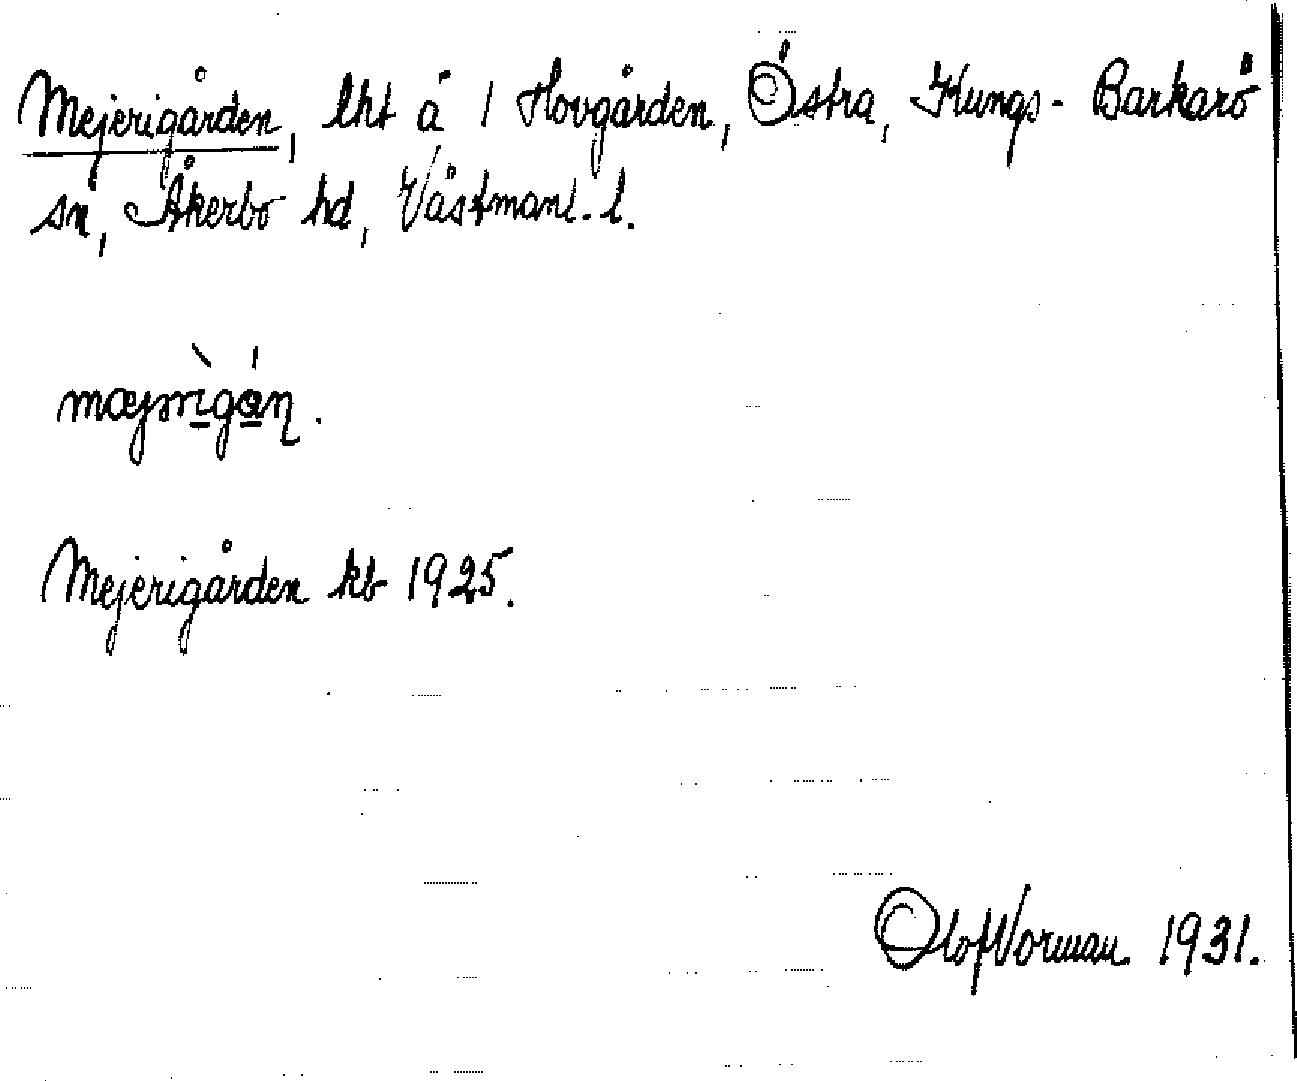 Mejerigården, lht å 1 Hovgården, Östra, Kungs-Barkarö
sn, Åkerbo hd, Västmanl. l.
mæjərìgán.
Mejerigården kb 1925.
Olof Norman 1931.